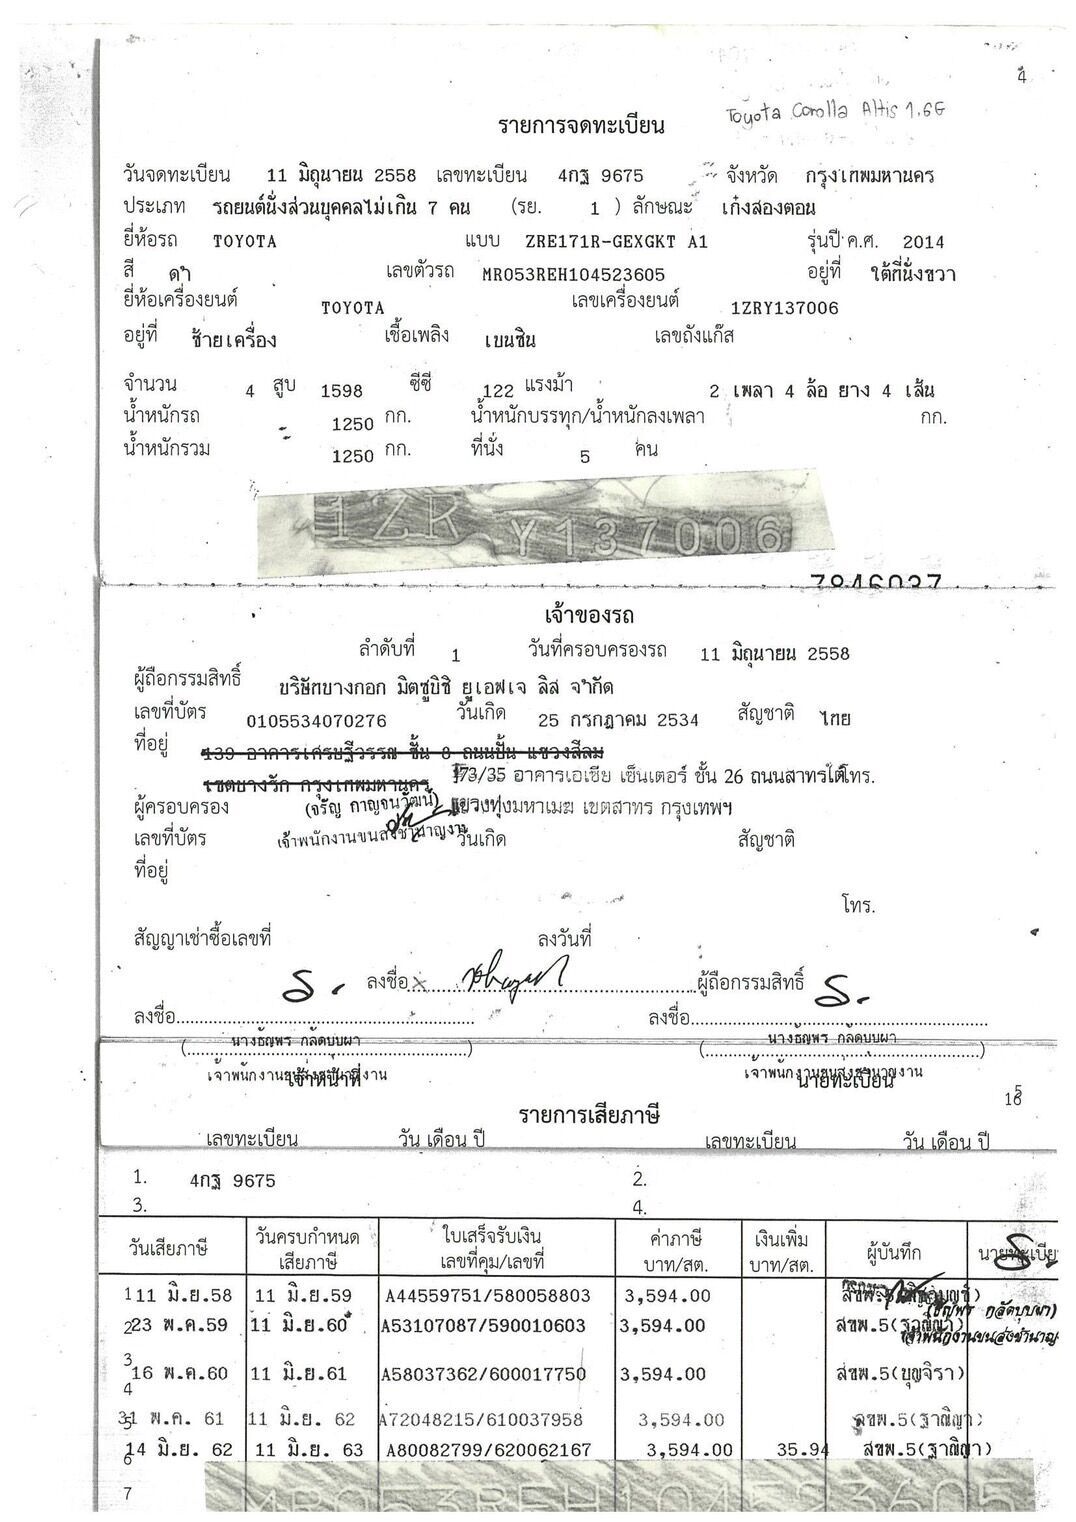 4
Toyota Corolla Altis 1.6G
รายการจดทะเบียน
วันจดทะเบียน 11 มิถุนายน 2558 เลขทะเบียน 4กฐ 9675 จังหวัด กรุงเทพมหานคร
ประเภท รถยนต์นั่งส่วนบุคคลไม่เกิน 7 คน (รย. 1 ) ลักษณะ เก๋งสองตอน
ยี่ห้อรถ TOYOTA แบบ ZRE171R-GEXGKT A1 รุ่นปี ค.ศ. 2014
สี ดำ เลขตัวรถ MR053REH104523605 อยู่ที่ ใต้ที่นั่งขวา
ยี่ห้อเครื่องยนต์ TOYOTA เลขเครื่องยนต์ 1ZRY137006
อยู่ที่ ซ้ายเครื่อง เชื้อเพลิง เบนซิน เลขถังแก๊ส
จำนวน 4 สูบ 1598 ซีซี 122 แรงม้า 2 เพลา 4 ล้อ ยาง 4 เส้น
น้ำหนักรถ 1250 กก. น้ำหนักบรรทุก/น้ำหนักลงเพลา กก.
น้ำหนักรวม 1250 กก. ที่นั่ง 5 คน
1ZR Y137006
7846037
เจ้าของรถ
ลำดับที่ 1 วันที่ครอบครองรถ 11 มิถุนายน 2558
ผู้ถือกรรมสิทธิ์ บริษัทบางกอก มิตซูบิชิ ยูเอฟเจ ลิส จำกัด
เลขที่บัตร 0105534070276 วันเกิด 25 กรกฎาคม 2534 สัญชาติ ไทย
ที่อยู่ 139 อาคารเศรษฐีวรรณ ชั้น 8 ถนนปั้น แขวงสีลม
เขตบางรัก กรุงเทพมหานคร 173/35 อาคารเอเชีย เซ็นเตอร์ ชั้น 26 ถนนสาทรใต้ โทร.
ผู้ครอบครอง (จรัญ กาญจนวัฒน์) แขวงทุ่งมหาเมฆ เขตสาทร กรุงเทพฯ
เลขที่บัตร เจ้าพนักงานขนส่งชำนาญงาน วันเกิด สัญชาติ
ที่อยู่
โทร.
สัญญาเช่าซื้อเลขที่ ลงวันที่
ลงชื่อ ผู้ถือกรรมสิทธิ์
ลงชื่อ ลงชื่อ
(นางธัญพร กลัดบุบผา) (นางธัญพร กลัดบุบผา)
เจ้าพนักงานขนส่งชำนาญงาน เจ้าพนักงานขนส่งชำนาญงาน
เจ้าหน้าที่ นายทะเบียน
16
5
รายการเสียภาษี
เลขทะเบียน วัน เดือน ปี เลขทะเบียน วัน เดือน ปี
1. 4กฐ 9675 2.
3. 4.
วันเสียภาษี วันครบกำหนดเสียภาษี ใบเสร็จรับเงิน เลขที่คุม/เลขที่ ค่าภาษี บาท/สต. เงินเพิ่ม บาท/สต. ผู้บันทึก นายทะเบีย
1 11 มิ.ย.58 11 มิ.ย.59 A44559751/580058803 3,594.00 สขพ.5
(ธัญพร กลัดบุบผา)
2 23 พ.ค.59 11 มิ.ย.60 A53107087/590010603 3,594.00 สขพ.5(ฐาณิญา)
เจ้าพนักงานขนส่งชำนาญ
3 16 พ.ค.60 11 มิ.ย.61 A58037362/600017750 3,594.00 สขพ.5(บุญจิรา)
4
5 31 พ.ค. 61 11 มิ.ย. 62 A72048215/610037958 3,594.00 สขพ.5(ฐาณิญา)
14 มิ.ย. 62 11 มิ.ย. 63 A80082799/620062167 3,594.00 35.94 สขพ.5(ฐาณิญา)
6
7
MR053REH104523605